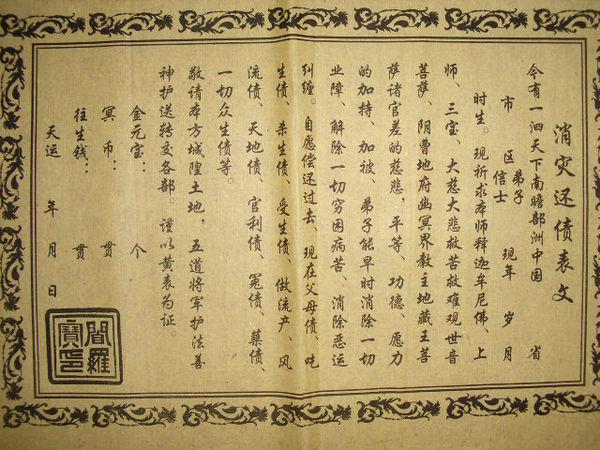 消灾还债表文
今有一泗天下南瞻部洲中国 省
市 区 弟子 信士 现年 岁 月
时生。现祈求本师释迦牟尼佛、上
师、三宝、大慈大悲救苦救难观世音
菩萨、阴曹地府幽冥界教主地藏王菩
萨诸官差的慈悲,平等、功德、愿力
的加特、加被、弟子能早时消除一切
业障、解除一切穷困病苦、消除恶运
纠缠。自愿偿还过去、现在父母债、吃
生债、杀生债、受生债、做流产、风
流债、天地债、官利债、冤债、蘖债、
一切众生债等。
敬请本方城隍土地,五道将军护法善
神护送转交各部。谨以黄表为证。
金元宝: 个
冥币: 贯
往生钱: 贯
天运 年 月 日
閻羅
寶印